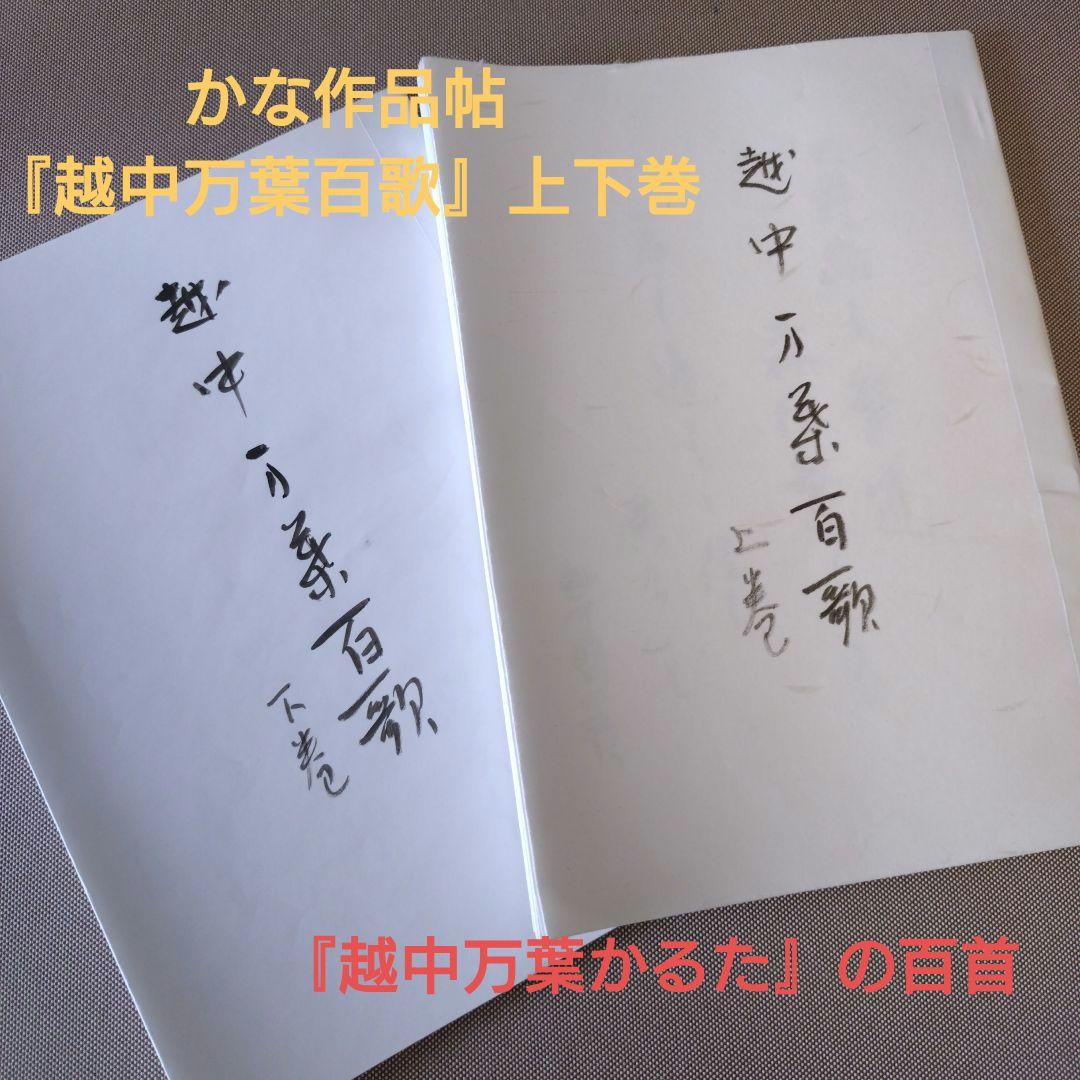 かな作品帖
『越中万葉百歌』上下巻
越中万葉百歌
上巻
越中万葉百歌
下巻
『越中万葉かるた』の百首